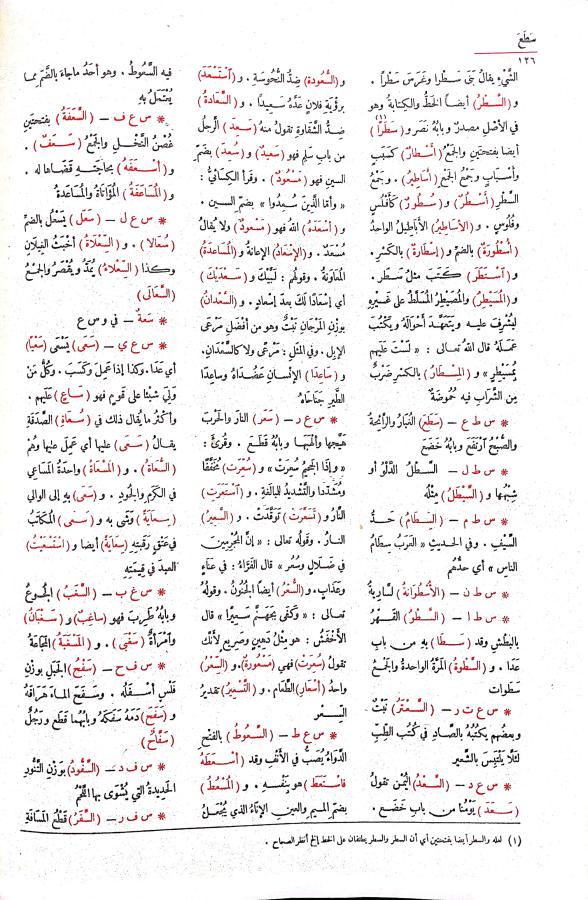 سَطَعَ
١٢٦
الشَّيْءِ يقالُ بَنَى سَطْرا وغَرَس سَطْرًا .
و (السَّطْرُ) أيضا الخَطُّ والكِتابةُ وهو
في الأصْلِ مصدرٌ وبابُهُ نَصَر و (سَطَرًا)(١)
أيضا بفتحتين والجمعُ (أسْطارٌ) كسَبَبٍ
وأسْبابٍ وجَمْعُ الجَمعِ (أساطِيرُ) . وجَمْعُ
السَّطْرِ (أسْطُرٌ) و (سُطُورٌ) كأَفْلُسٍ
وفُلُوسٍ . و (الأساطِيرُ) الأباطيلُ الواحدُ
(أُسْطُورَةٌ) بالضم و (إسْطارَةٌ) بالكَسْرِ .
و (آسْتَطَرَ) كَتَبَ مثلُ سَطَر .
و (المُسَيْطِرُ) والمُصَيْطِرُ المُسَلَّطُ على غيرِهِ
ليُشْرِفَ عليه ويَتَعَهَّدَ أحْوالَهُ ويَكْتُبَ
عَمَلَهُ قال اللهُ تعالى : « لَسْتَ عليهم
بمُسَيْطِرٍ » و (المِسْطارُ) بالكسرِ ضَرْبٌ
مِن الشَّرابِ فيه حُمُوضَةٌ
* س ط ع – (سَطَعَ) الغُبارُ والرَّائِحةُ
والصُّبْحُ آرْتَفَع وبابُهُ خَضَعَ
* س ط ل – السَّطْلُ الدَّلْوُ أو
شِبْهُها و (السَّيْطَلُ) مِثْلُهُ
* س ط م – (السِّطَامُ) حَدُّ
السَّيْفِ . وفي الحديث « العَرَبُ سِطَامُ
الناسِ » أي حدُّهُم
* س ط ن – (الأُسْطُوانَةُ) لسارِيَةٌ
* س ط ا – (السَّطْوُ) القَهْرُ
بالبَطْشِ وقد (سَطَا) به مِن بابِ
عَدَا . و (السَّطْوَةُ) المَرَّةُ الواحدةُ والجَمْعُ
سَطَوات
* س ع ت ر – (السَّعْتَرُ) نَبْتٌ
وبعضُهم يَكتُبُهُ بالصَّادِ في كُتُبِ الطِّبِّ
لئلَّا يَلْتَبِسَ بالشَّعيرِ
* س ع د – (السَّعْدُ) اليُمْنُ تقولُ
(سَعَدَ) يَوْمُنا مِن بابِ خَضَع .
و (السُّعُودةُ) ضِدُّ النُّحُوسةِ . و (آسْتَسْعَدَ)
برؤيةِ فلانٍ عَدَّهُ سَعيدًا . و (السَّعادةُ)
ضِدُّ الشَّقاوةِ تقولُ منه (سَعِدَ) الرَّجُلُ
من باب سَلِم فهو (سَعِيدٌ) و (سُعِدَ) بضم
السين فهو (مَسْعُودٌ) . وقرأ الكِسائيُّ :
« وأمَّا الَّذينَ سُعِدُوا » بضم السين .
و (أسْعَدَهُ) اللهُ فهو (مَسْعُودٌ) ولا يُقالُ
مُسْعَدٌ . و (الإسْعادُ) الإعانَةُ و (المُساعَدَةُ)
المُعاوَنَةُ . وقولهُم : لَبَّيْكَ و (سَعْدَيْكَ)
أي إسْعادًا لكَ بعدَ إسعادٍ . و (السَّعْدانُ)
بوزْنِ المَرْجانِ نَبْتٌ وهو مِن أفضَلِ مَرْعَى
الإبِلِ . وفي المثَلِ : مَرْعًى ولا كالسَّعْدَانِ .
و (ساعِدَا) الإنسانِ عَضُداهُ وساعِدَا
الطَّيرِ جَناحاهُ
* س ع ر – (سَعَر) النارَ والحَرْبَ
هَيَّجها وألْهَبها وبابُه قَطَع . وقُرِئَ :
« وإذا الجَحِيمُ سُعِرَتْ » و (سُعِّرَتْ) مُخَفَّفًا
ومُشَدَّدا والتَّشديدُ للمُبالَغةِ . و (آسْتَعَرَتِ)
النَّارُ و (تَسَعَّرَتْ) تَوَقَّدَتْ . و (السَّعيرُ)
النارُ . وقولُه تعالى : « إنَّ المُجْرِمِينَ
في ضَلَالٍ وسُعُر » قال الفَرَّاءُ : في عَناءٍ
وعَذابٍ . و (السُّعُرُ) أيضًا الجُنونُ . وقولُهُ
تعالى : « وكَفَى بجَهَنَّمَ سَعِيرًا » قال
الأخْفَشُ : هو مِثْلُ دَهِينٍ وصَرِيعٍ لأنَّكَ
تقولُ (سُعِرَتْ) فهي (مَسْعُورةٌ) . و (السِّعْرُ)
واحدُ (أسْعارِ) الطَّعَامِ . و (التَّسْعيرُ) تقديرُ
السِّعْرِ
* س ع ط – (السَّعُوطُ) بالفتحِ
الدَّواءُ يُصَبُّ في الأنْفِ وقد (أسْعَطَهُ
فاسْتَعَطَ) هو بنَفْسِه . و (المُسْعُطُ)
بضم الميم والعينِ الإناءُ الذي يُجْعَلُ
فيه السَّعُوط . وهو أحَدُ ماجاءَ بالضَّمِّ مِما
يُعْتَمَلُ به
* س ع ف – (السَّعَفَةُ) بفتحتينِ
غُصْنُ النَّخْلِ والجَمْعُ (سَعَفٌ) .
و (أسْعَفَهُ) بحاجَتِهِ قَضَاها له .
و (المُساعَفَةُ) المُؤَاتاةُ والمُسَاعَدةُ
* س ع ل – (سَعَلَ) يَسْعُلُ بالضم
(سُعالا) . و (السِّعْلَاةُ) أخْبَثُ الغِيلانِ
وكذا (السِّعْلاءُ) يُمَدُّ ويُقْصَرُ والجَمْعُ
(السَّعالَى)
* سَعةٌ – في و س ع
* س ع ي – (سَعَى) يَسْعَى (سَعْيًا)
أي عَدَا . وكذا إذا عَمِلَ وكَسَب . وكُلُّ مَنْ
وَلِيَ شيئا على قَومٍ فهو (ساعٍ) عليهم .
وأكثرُ ما يُقال ذلك في (سُعاةِ) الصَّدَقَةِ
يقالُ (سَعَى) عليها أي عَمِلَ عليها وهُمْ
(السُّعَاةُ) . و (المَسْعَاةُ) واحِدةُ المَساعِي
في الكَرَمِ والجُودِ . و (سَعَى) به إلى الوالي
(سِعايةً) وَشَى به و (سَعَى) المُكاتَبُ
في عِتْقِ رَقَبَتِهِ (سِعَايةً) أيضا و (آسْتَسْعَيْتُ)
العبدَ في قِيمَتِهِ
* س غ ب – (السَّغَبُ) الجُوعُ
وبابُهُ طَرِب فهو (ساغِبٌ) و (سَغْبَانُ)
وآمْرَأَةٌ (سَغْبَى) . و (المَسْغَبَةُ) المَجَاعَةُ
* س ف ح – (سَفْحُ) الجَبَلِ بوزنِ
فَلْسٍ أسْفَلُه . وسَفَحَ الماءَ هَرَاقَهُ
و (سَفَحَ) دَمَهُ سَفَكَهُ وبابُهُما قَطَع ورَجُلٌ
(سَفَّاحٌ)
* س ف د – (السَّفُّودُ) بوَزنِ التَّنُّورِ
الحَدِيدةُ التي يُشْوَى بها اللَّحْمُ
* س ف ر – (السَّفَرُ) قَطْعُ المَسافَةِ
(١) لعله والسطر أيضا بفتحتين أي أن السطر والسطر يطلقان على الخط إلخ أنظر الصحاح .